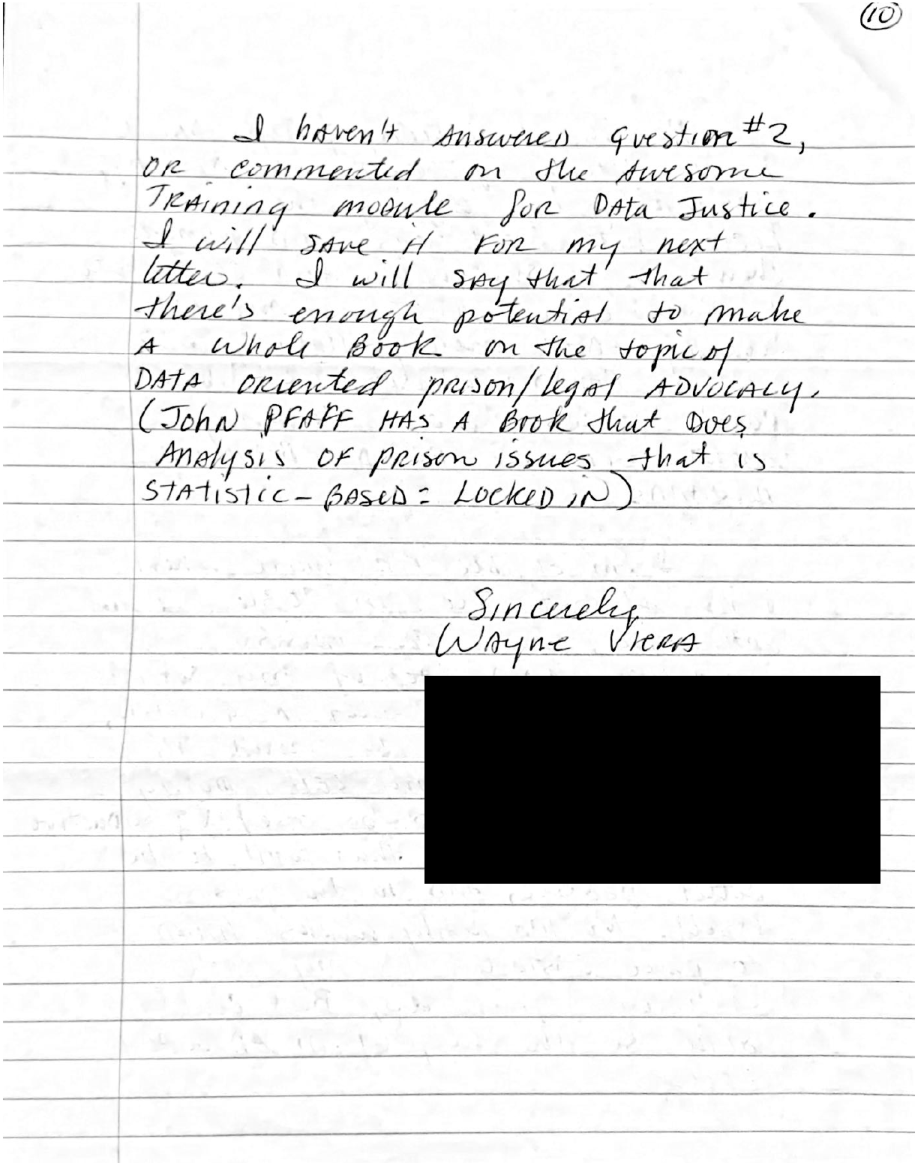 10
I haven't answered question #2,
OR commented on the awesome
TRAining module for DATA Justice.
I will SAVE it FOR my next
letter. I will say that that
there's enough potential to make
A whole Book on the topic of
DATA ORiented prison/legal ADVOCACY.
(John PFAFF HAS A Book that Does
Analysis OF prison issues that is
STATistic-BASED: LOCKED IN)
Sincerely
Wayne Viera